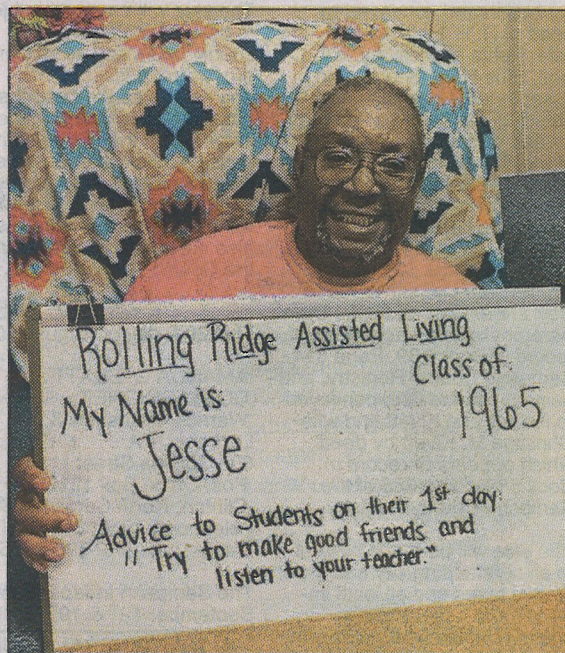 Rolling Ridge Assisted Living
Class of:
My Name is:
1965
Jesse
Advice to Students on their 1st day:
"Try to make good friends and
listen to your teacher."